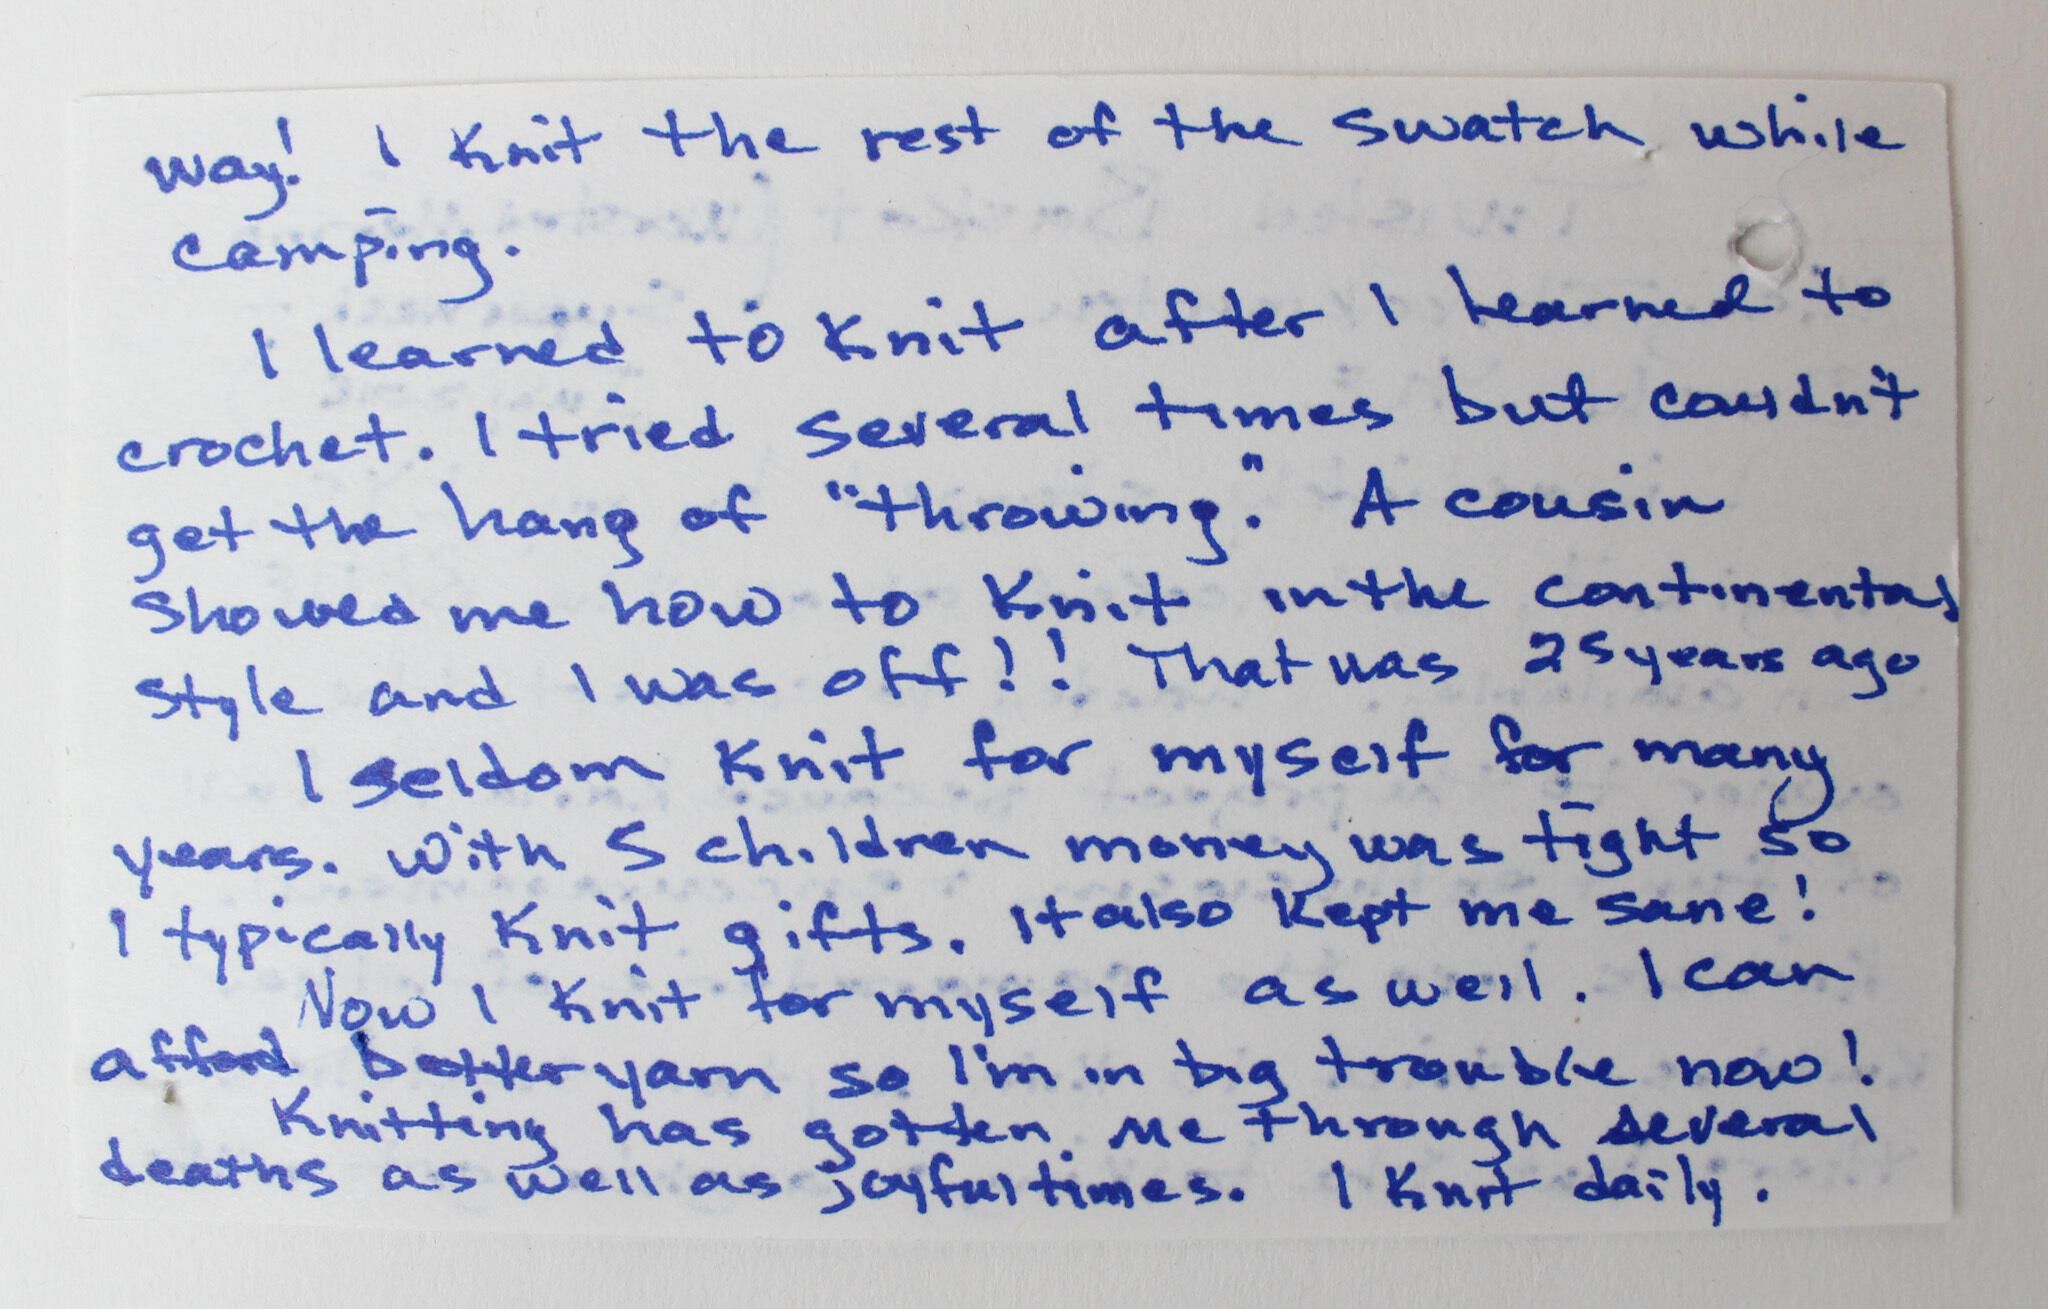 way! I knit the rest of the swatch while
camping.
I learned to knit after I learned to
crochet. I tried several times but couldn't
get the hang of "throwing." A cousin
showed me how to knit in the continental
style and I was off!! That was 25 years ago
I seldom knit for myself for many
years. With 5 children money was tight so
I typically knit gifts. It also kept me sane!
Now I knit for myself as well. I can
afford better yarn so I'm in big trouble now!
Knitting has gotten me through several
deaths as well as joyful times. I knit daily.